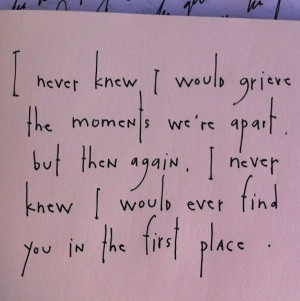 I never knew I would grieve
the moments we're apart.
but then again, I never
knew I would ever find
you in the first place.